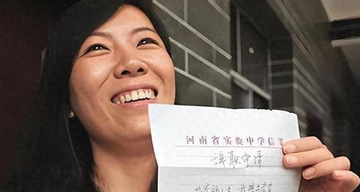 河南省实验中学信笺
辞职申请